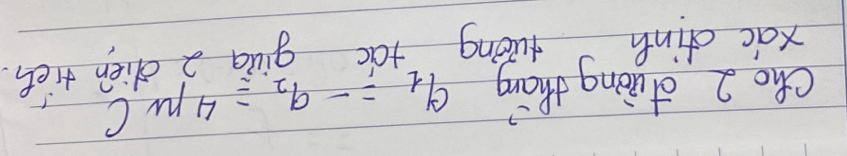 Cho 2 đường thẳng q₁ = - q₂ = 4 μ C
xác định tương tác giữa 2 điện tích.